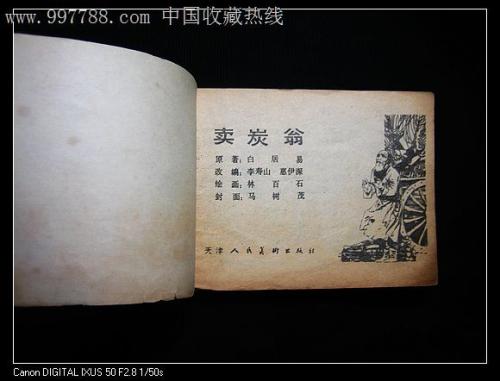 www.997788.com 中国收藏热线
卖炭翁
原著：白居易
改编：李寿山 惠伊深
绘画：林百石
封面：马树茂
天津人民美術出版社
Canon DIGITAL IXUS 50 F2.8 1/50s